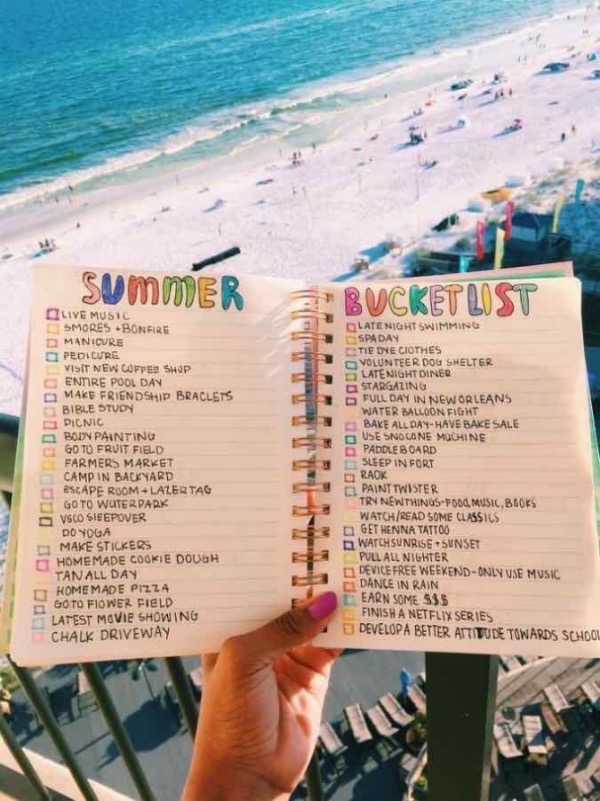 SUMMER
LIVE MUSIC
SMORES + BONFIRE
MANICURE
PEDICURE
VISIT NEW COFFEE SHOP
ENTIRE POOL DAY
MAKE FRIENDSHIP BRACLETS
BIBLE STUDY
PICNIC
BODY PAINTING
GO TO FRUIT FIELD
FARMERS MARKET
CAMP IN BACKYARD
ESCAPE ROOM + LAZERTAG
GO TO WATERPARK
VSCO SLEEPOVER
DO YOGA
MAKE STICKERS
HOMEMADE COOKIE DOUGH
TAN ALL DAY
HOMEMADE PIZZA
GO TO FLOWER FIELD
LATEST MOVIE SHOWING
CHALK DRIVEWAY
BUCKET LIST
LATE NIGHT SWIMMING
SPA DAY
TIE DYE CLOTHES
VOLUNTEER DOG SHELTER
LATE NIGHT DINER
STARGAZING
FULL DAY IN NEW ORLEANS
WATER BALLOON FIGHT
BAKE ALL DAY - HAVE BAKE SALE
USE SNOCONE MUCHINE
PADDLE BOARD
SLEEP IN FORT
RAOK
PAINT TWISTER
TRY NEW THINGS - FOOD, MUSIC, BOOKS
WATCH/READ SOME CLASSICS
GET HENNA TATTOO
WATCH SUNRISE + SUNSET
PULL ALL NIGHTER
DEVICE FREE WEEKEND - ONLY USE MUSIC
DANCE IN RAIN
EARN SOME $$$
FINISH A NETFLIX SERIES
DEVELOP A BETTER ATTITUDE TOWARDS SCHOOL